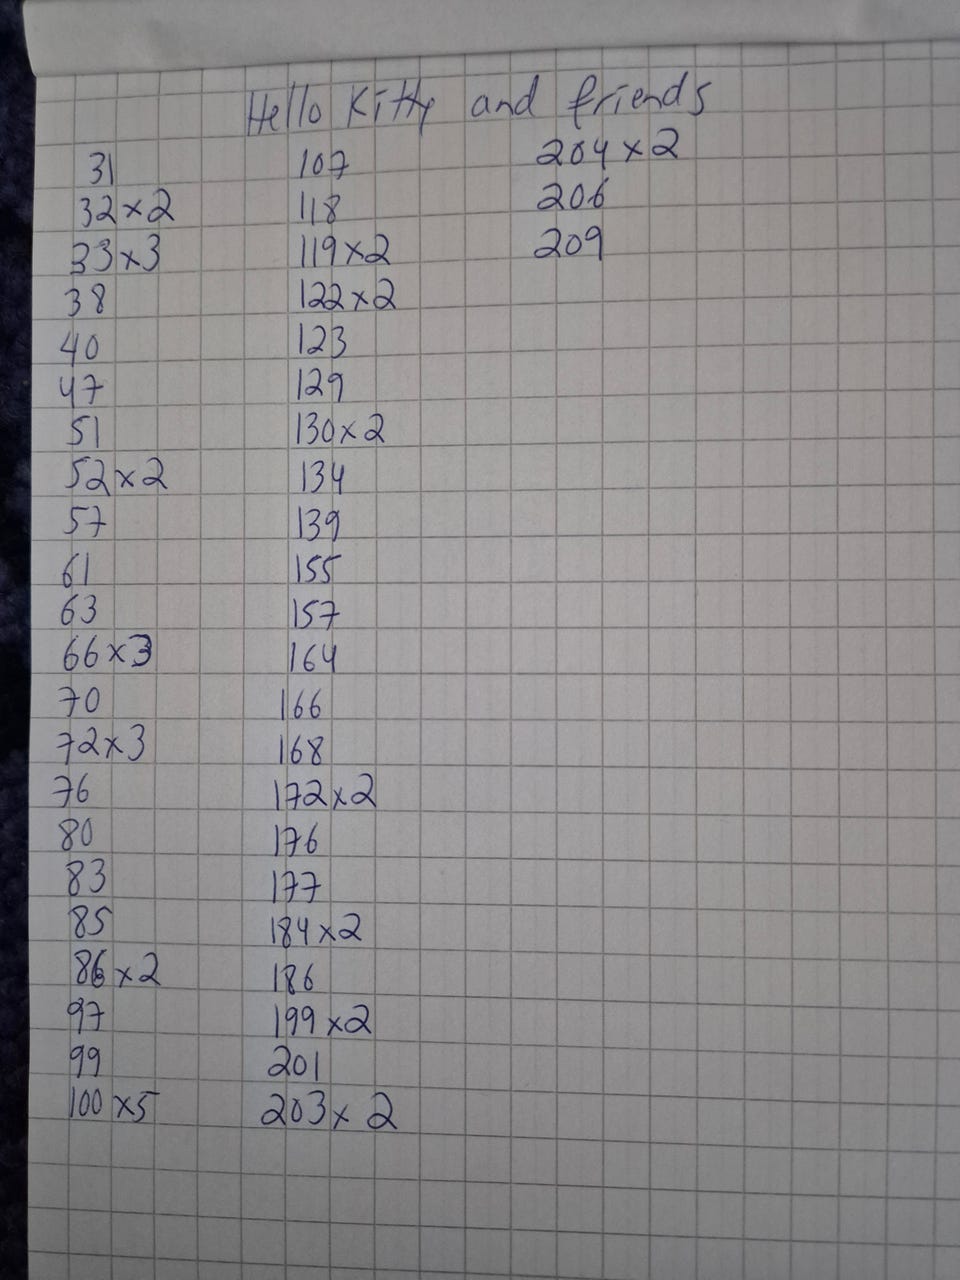 Hello Kitty and friends
31
32x2
33x3
38
40
47
51
52x2
57
61
63
66x3
70
72x3
76
80
83
85
86x2
97
99
100x5
107
118
119x2
122x2
123
129
130x2
134
139
155
157
164
166
168
172x2
176
177
184x2
186
199x2
201
203x2
204x2
206
209